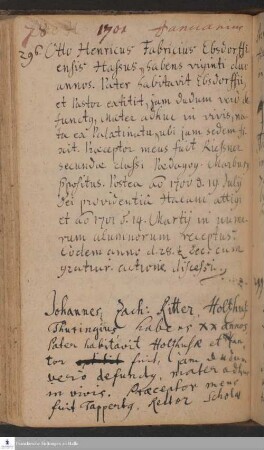 78 1701
296 Otto Henricus Fabricius Ebsdorffi
ensis Hassus, habens viginti duo
annos. Pater habitavit Ebsdorffii,
et Pastor extitit, jam dudum vero de
functus, Mater adhuc in vivis, na
ta ex Palatinatu, ubi jam sedem fi
xit. Præceptor meus fuit
secundæ Classi Pædagog. Marburg
præpositus. Postea ao 1700 d. 19 July
Dei providentiâ Halam attigi
et ao 1701 d. 14. Martij in nume
rum alumnorum receptus.
Eodem anno d. 28. Dec. cum
gratiar. actione discessit.
Johannes Zach: Ritter, Holthus.
Thuringus habens XX annos
Pater habitavit Holthusæ et Pas
tor fuit, jam dudum
vero defunctus, mater adhuc
in vivis. Præceptor meus
fuit Rector Scholæ